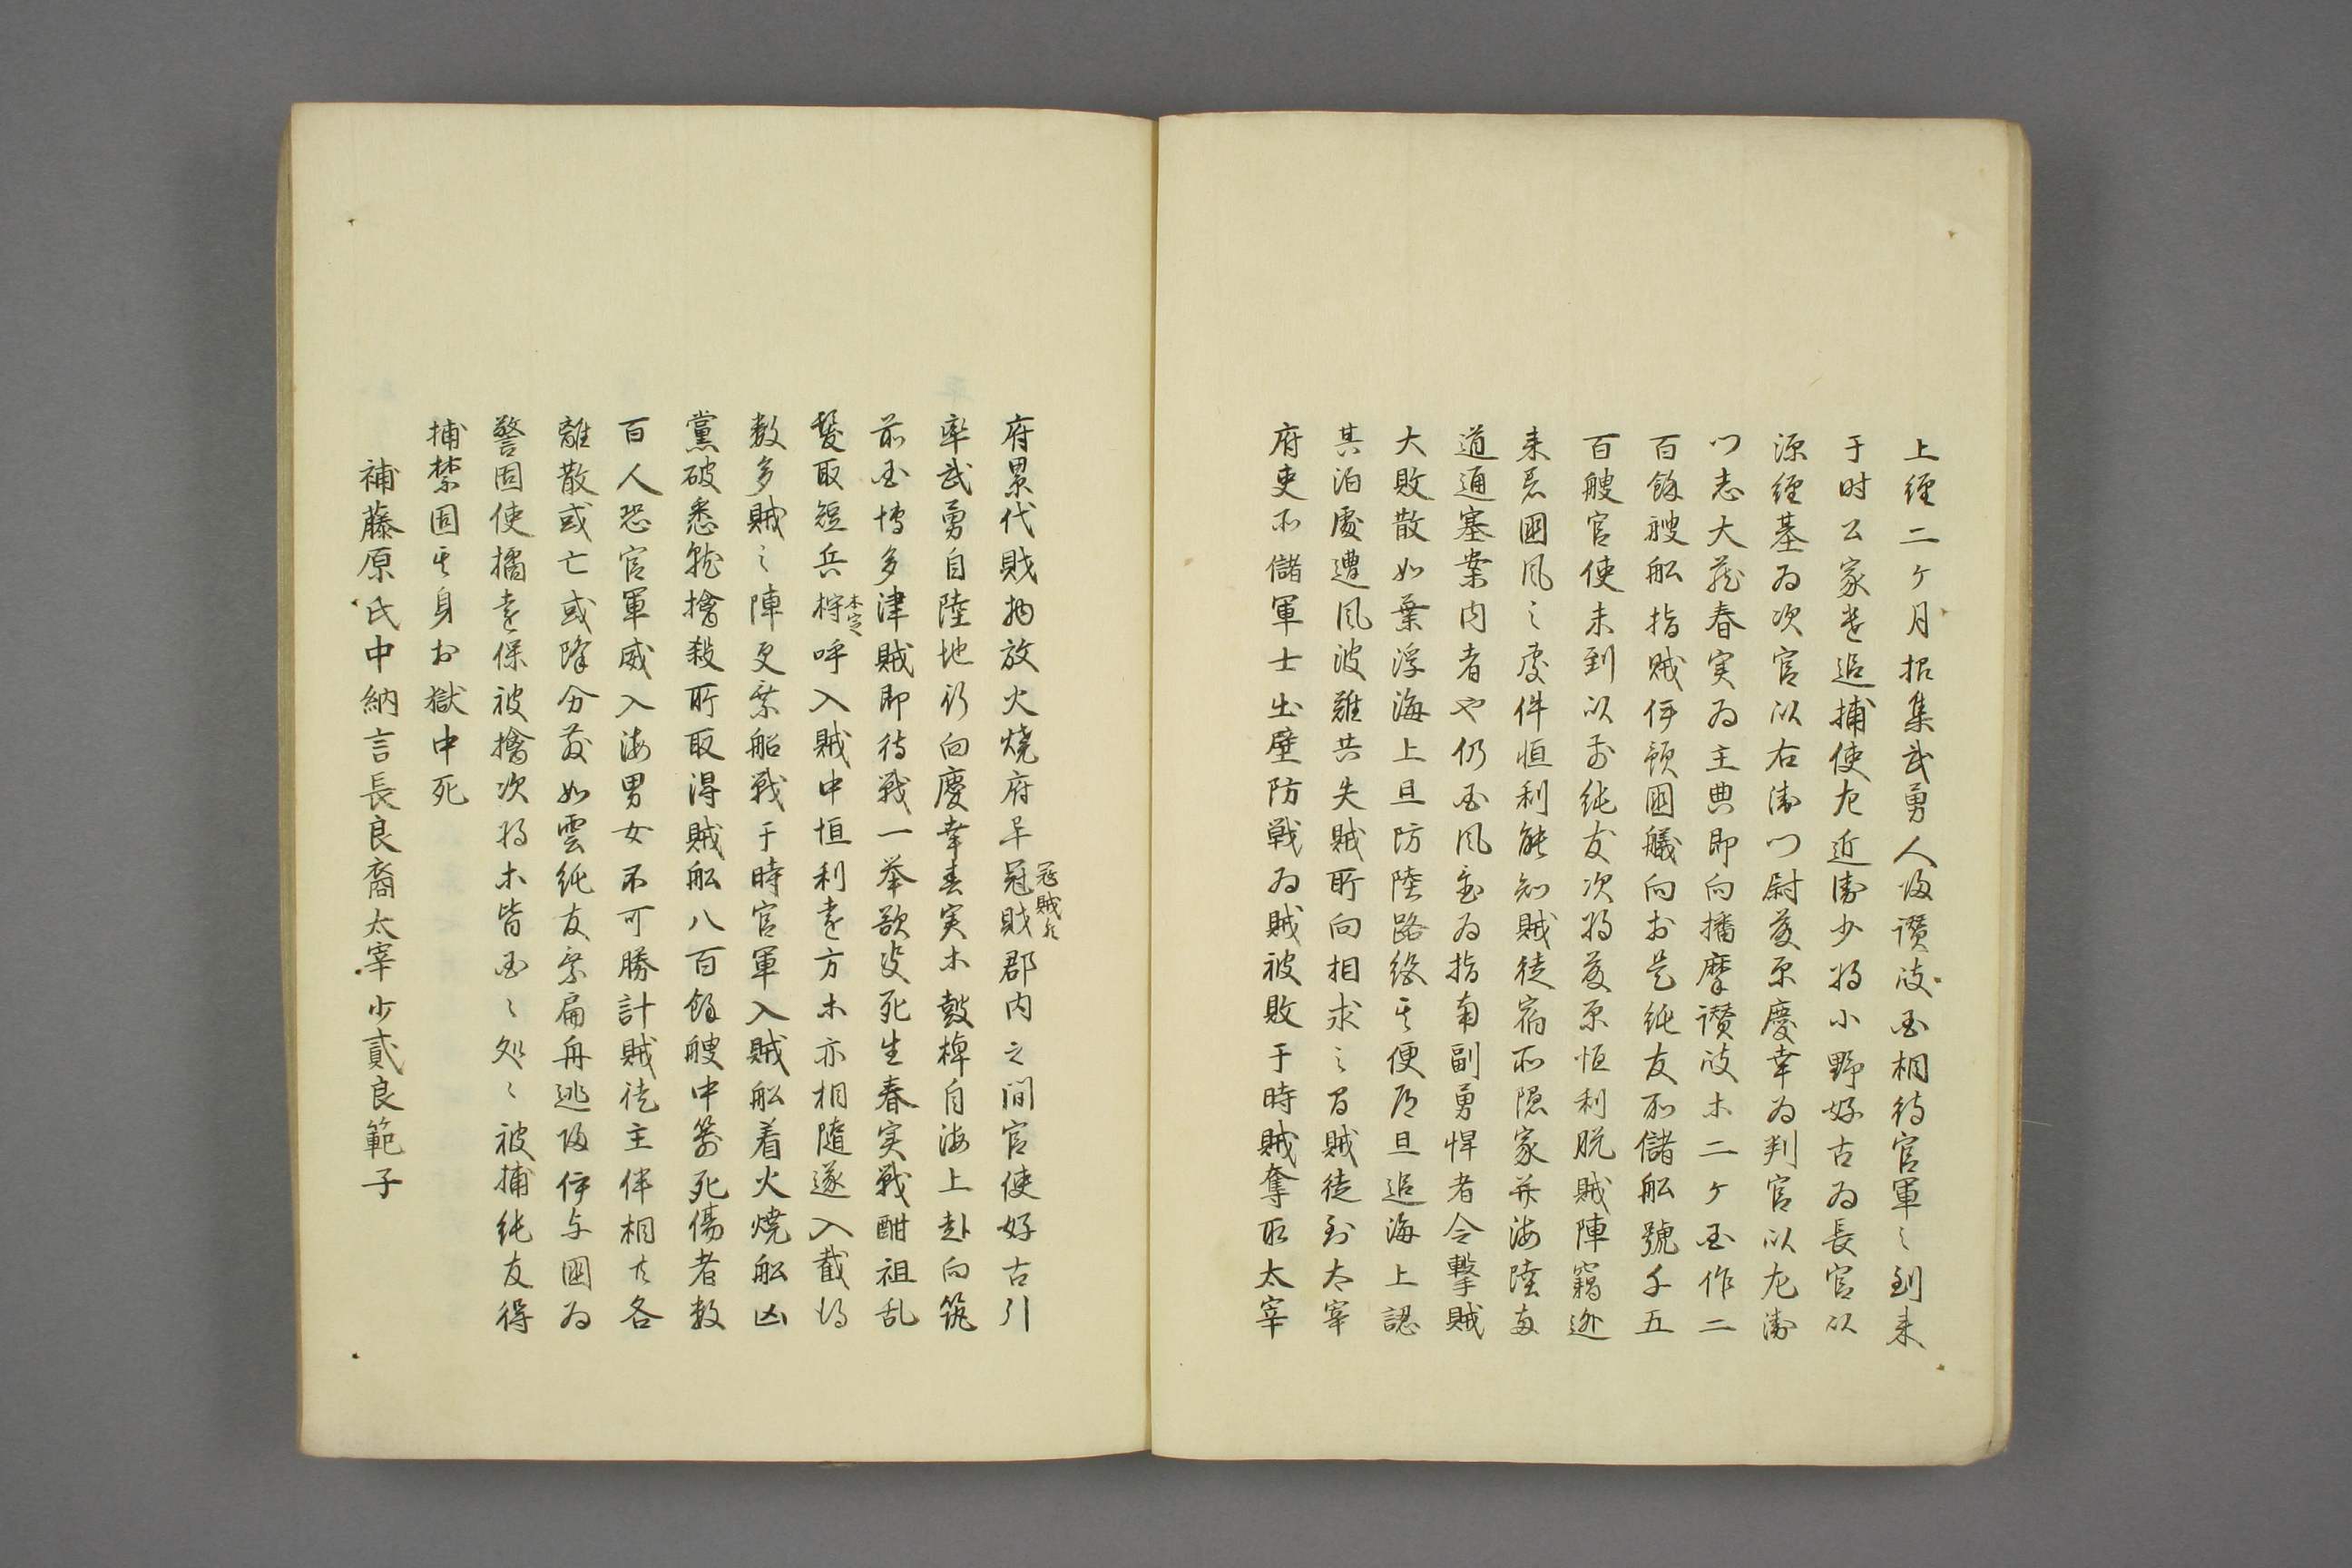 上経二ヶ月招集武勇人帰讃岐国相待官軍之到来
于时公家遣追捕使左近衛少将小野好古為長官以
源経基為次官以右衛门尉藤原慶幸為判官以左衛
门志大蔵春実為主典即向播摩讃岐ホ二ヶ国作二
百餘艘舩指賊伊預國艤向於是純友所儲舩號千五
百艘官使未到以前純友次将藤原恒利脱賊陣竊迯
来着國風之處件恒利能知賊徒宿所隠家并海陸両
道通塞案内者也仍国風置為指南副勇悍者令撃賊
大敗散如葉浮海上且防陸路絶其便道且追海上認
其泊處遭風波難共失賊所向相求之間賊徒到太宰
府更所儲軍士出壁防戦為賊被敗于時賊奪取太宰
府累代財物放火焼府畢冦財郡内之間官使好古引
冦賊歟
率武勇自陸地行向慶幸春実ホ鼓棹自海上赴向筑
前国博多津賊即待戦一挙欲决死生春実戦酣祖乱
髪取短兵桴呼入賊中恒利遠方ホ亦相随遂入截得
本定
数多賊之陣更乗船戦于時官軍入賊舩着火焼舩凶
黨破悉就擒殺所取得賊舩八百餘艘中箭死傷者数
百人恐官軍威入海男女不可勝計賊徒主伴相共各
離散或亡或降分散如雲純友乗扁舟逃帰伊与國為
警固使橘遠保被擒次将ホ皆国々処々被捕純友得
捕禁固其身於獄中死
補藤原氏中納言長良裔太宰少貳良範子